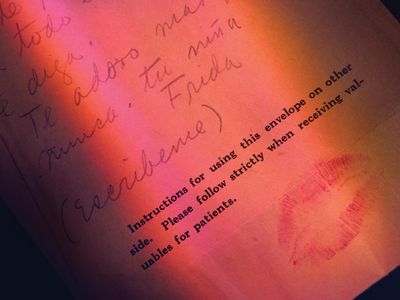 todo
diga.
Te adoro mas
nunca. tu niña
Frida
(Escribeme)
Instructions for using this envelope on other
side. Please follow strictly when receiving val-
uables for patients.